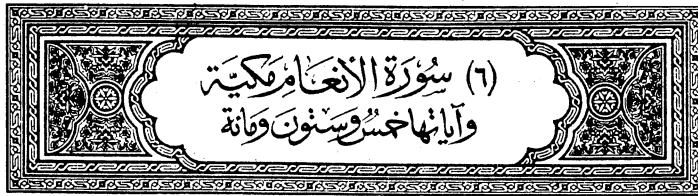 (٦) سُورَة الأنعَام مَكيَّة
وآياتها خمسٌ وستون ومائة